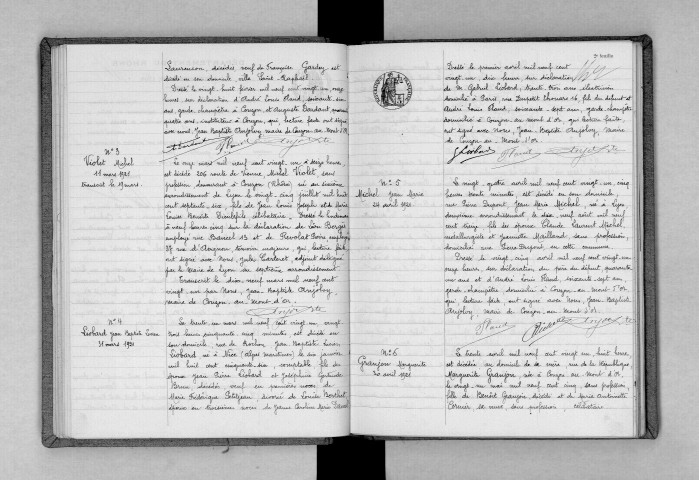 Laurencon, décédée, veuf de Françoise Gardey est
décédé en son domicile ville Saint-Raphaël.
Dressé le vingt huit février mil neuf cent vingt un, onze
heures sur déclaration d'André Louis Plaud, soixante six
ans, garde champêtre à Couzon, et Auguste
quatre ans, instituteur à Couzon, qui, lecture faite ont signé
avec nous, Jean Baptiste Anjolvy maire de Couzon au Mont d'Or.
N° 3
Violet Michel
11 mars 1921
transcrit le 19 mars.
Le onze mars mil neuf cent vingt un, à seize heures,
est décédé 206 route de Vienne, Michel Violet, sans
profession demeurant à Couzon (Rhône) né au sixième
arrondissement de Lyon le vingt cinq juillet mil huit
cent septante six, fils de Jean Louis Joseph et de Marie
Louise Benoite célibataire. Dressé le lendemain
à neuf heures sur la déclaration de Léon Bergès
employé rue 15 et de employé
37 rue d'Avignon témoin majeurs, qui lecture faite
ont signé avec Nous, Jules adjoint délégué
par le Maire de Lyon au septième arrondissement
Transcrit le dix neuf mars mil neuf cent
vingt un par Nous, Jean Baptiste Anjolvy
maire de Couzon au Mont d'Or.
N° 4
Liobard Jean Baptiste Lucien
31 mars 1921
Le trente un mars mil neuf cent vingt un, vingt
trois heures cinquante cinq minutes, est décédé en
son domicile, rue de Rochon, Jean Baptiste Lucien
Liobard né à Nice (Alpes maritimes) le six janvier
mil huit cent cinquante six, comptable fils des
époux Jean Pierre Liobard et Joséphine Gertrude
Brun décédés, veuf en premières noces de
Marie Frédérique divorcé de Louise
époux en troisièmes noces de Jeanne Caroline Marie
2e feuille
Dressé le premier avril mil neuf cent
vingt un, dix heures, sur déclaration
de M. Gabriel Liobard, trente trois ans électricien
domicilié à Paris, rue 16, fils du défunt et
André Louis Plaud, soixante sept ans, garde champêtre
domicilié à Couzon au Mont d'Or, qui lecture faite,
ont signé avec Nous, Jean Baptiste Anjolvy, maire
de Couzon au Mont d'Or.
G Liobard
N° 5
Michel Jean Marie
24 avril 1921
Le vingt quatre avril mil neuf cent vingt un, cinq
heures trente minutes est décédé en son domicile
rue Pierre Dupont, Jean Marie Michel, né à Lyon
deuxième arrondissement le dix août mil neuf
cent treize fils de époux Claude Laurent Michel
métallurgiste et Jeannette Mailland sans profession,
domiciliés rue Pierre Dupont en cette commune.
Dressé le vingt cinq avril mil neuf cent vingt un,
onze heures, sur déclaration du père du défunt, quarante
un ans et d'André Louis Plaud, soixante sept ans
garde champêtre domicilié à Couzon au Mont d'Or
qui, lecture faite, ont signé avec Nous, Jean Baptiste
Anjolvy, maire de Couzon au Mont d'Or.
N° 6
Granjon Marguerite
30 avril 1921
Le trente avril, mil neuf cent vingt un huit heures,
est décédée au domicile de sa mère rue de la République,
Marguerite Granjon née à Couzon au Mont d'Or
le vingt un mai mil neuf cent cinq, sans profession,
fille de Benoît Granjon décédé et de Marie Antoinette
sa veuve sans profession, célibataire